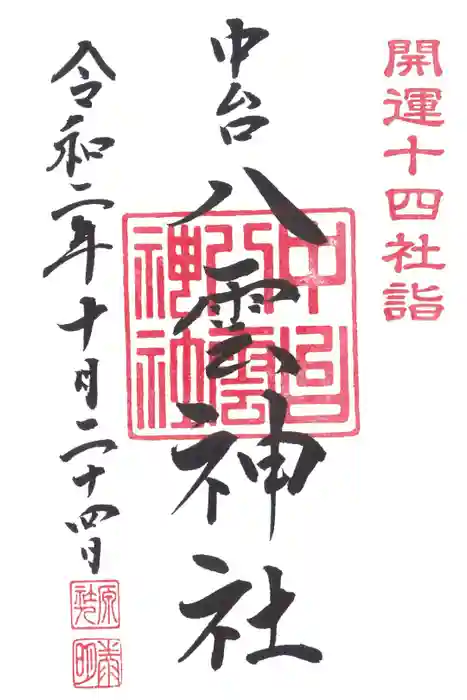 開運十四社詣
中台
八雲神社
中台
八雲
神社
令和二年十月二十四日